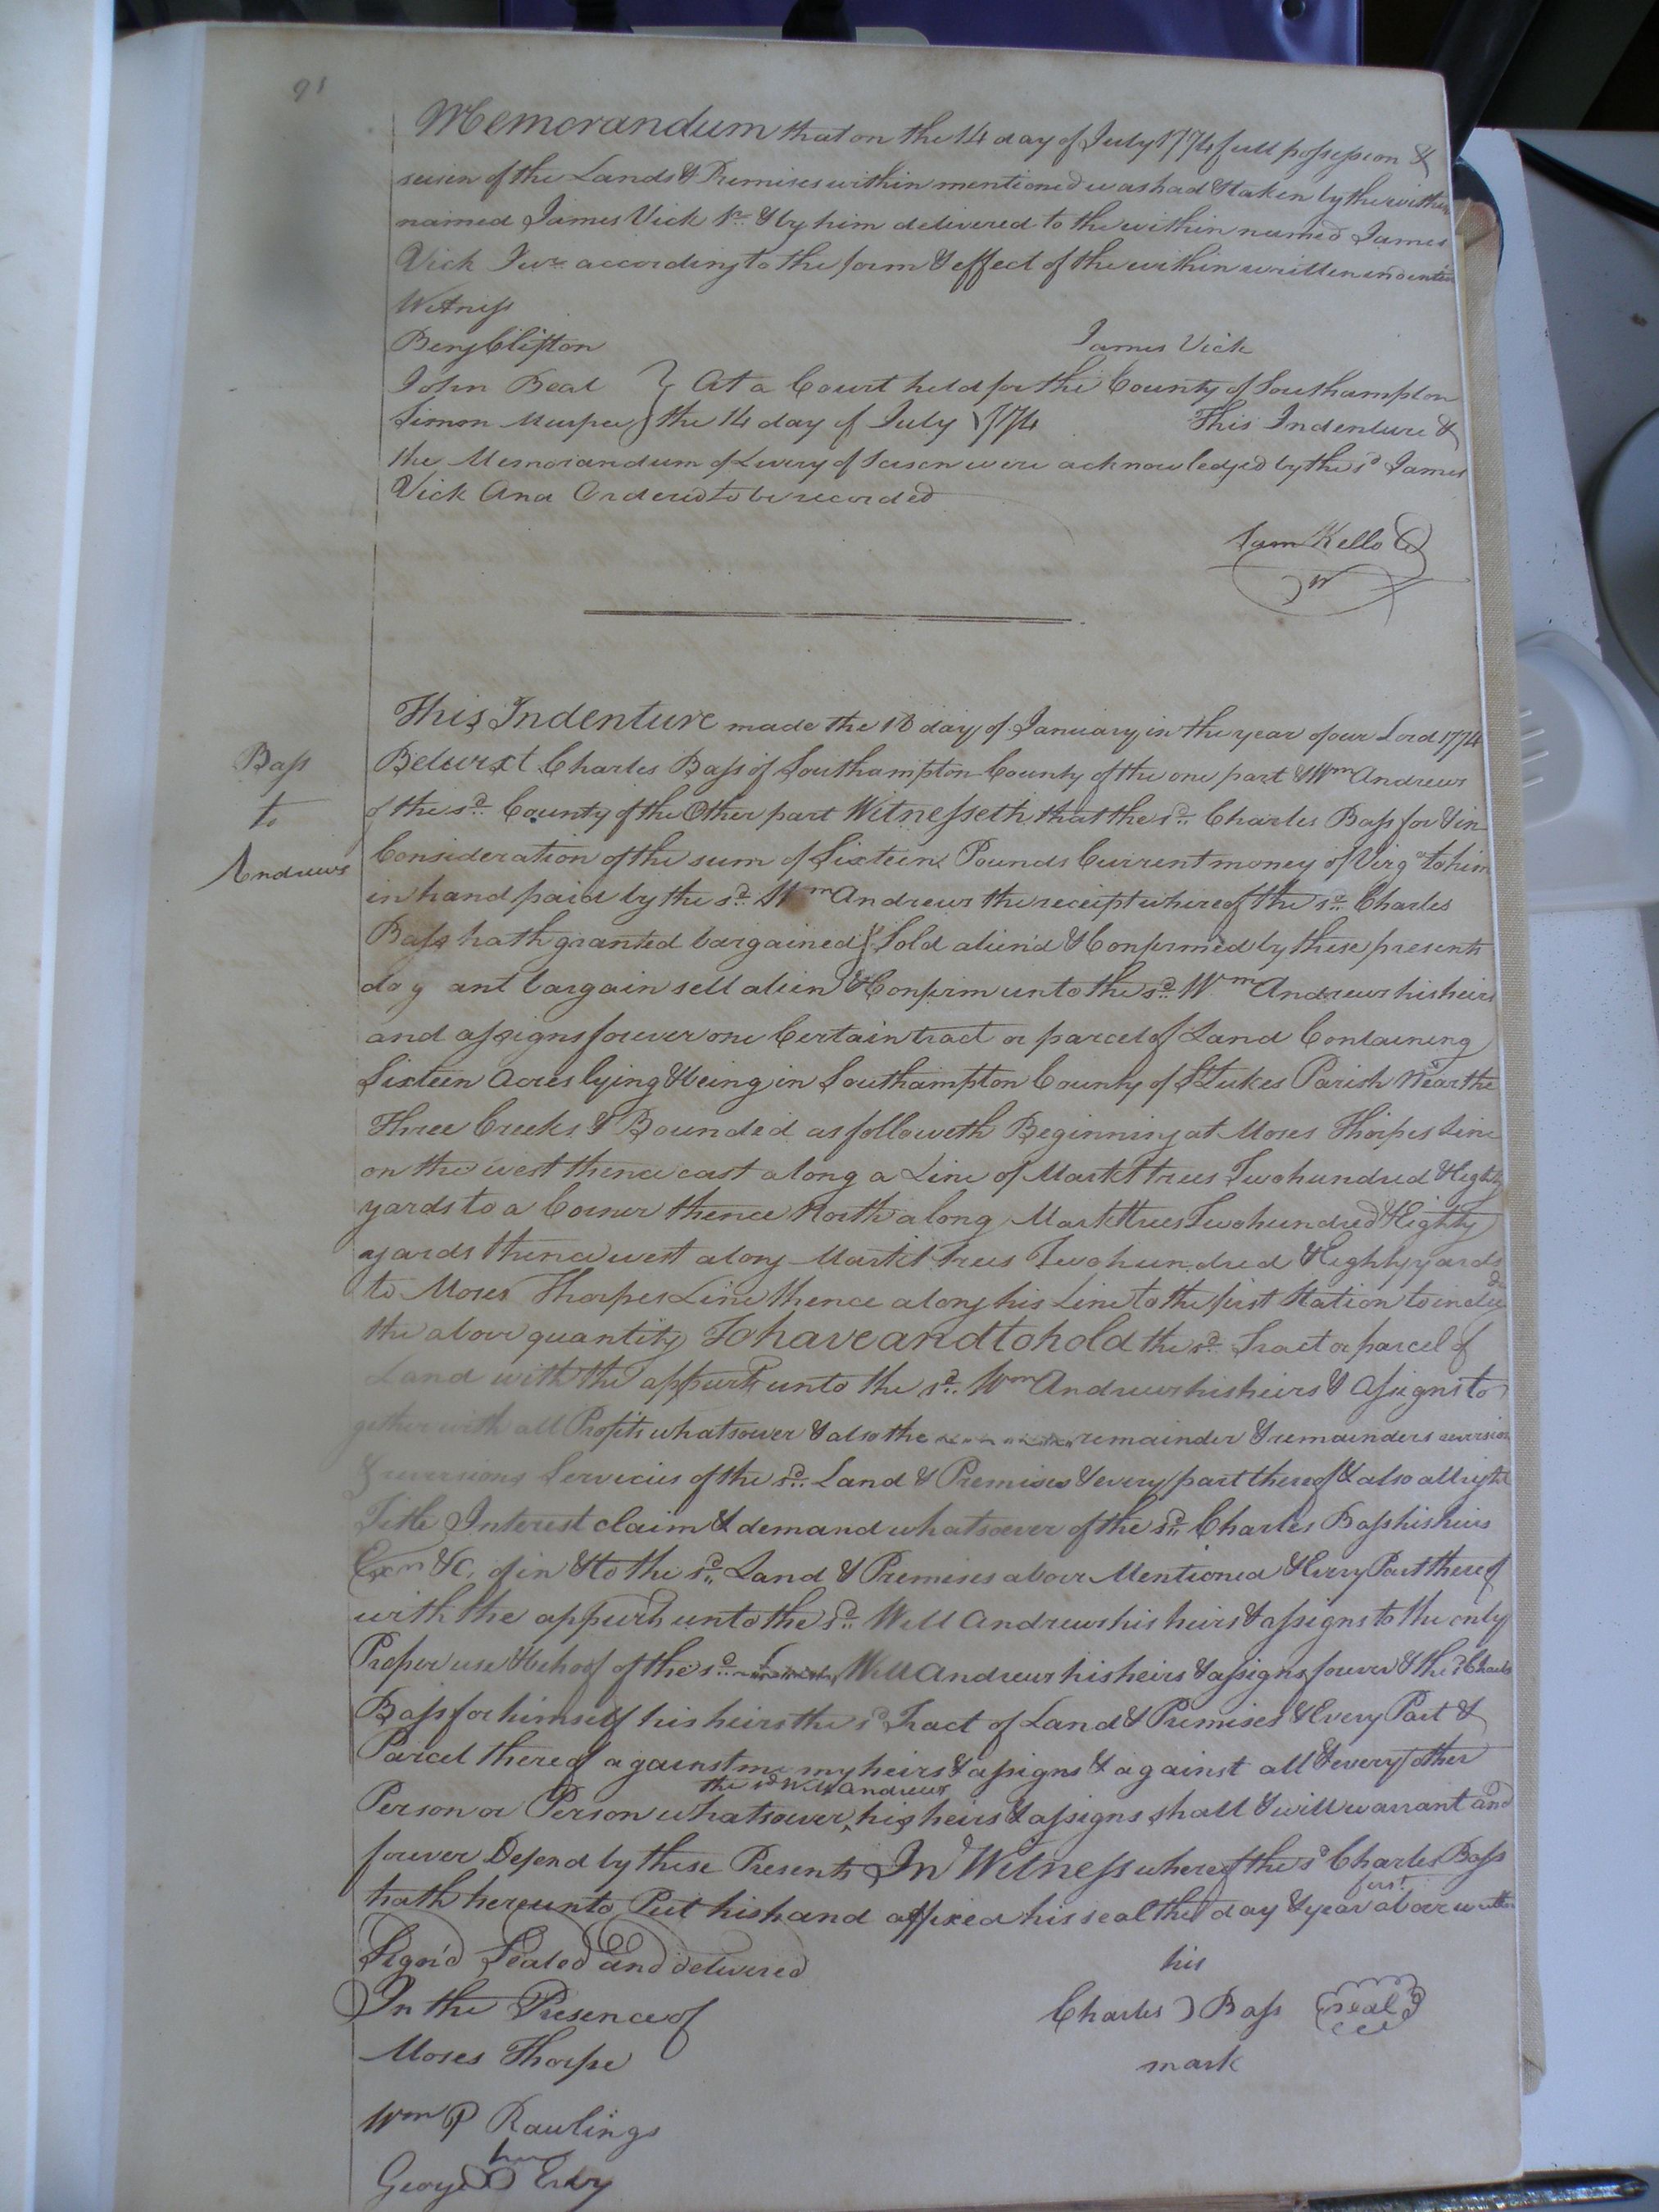 91
Memorandum that on the 14 day of July 1774 full possession &
seisen of the Lands & Premises within mentioned was had & taken by the within
named James Vick Sr. & by him delivered to the within named James
Vick Junr according to the form & effect of the within written indenture
Witness
Benj Clifton
James Vick
John Beal } At a Court held for the County of Southampton
Simon Murfee } the 14 day of July 1774 This Indenture &
the Memorandum of Livery of Seisen were acknowledged by the sd James
Vick And Ordered to be recorded
Sam Kello
Bass
to
Andrews
This Indenture made the 18 day of January in the year of our Lord 1774
Betwixt Charles Bass of Southampton County of the one part & Wm Andrews
of the sd. County of the Other part Witnesseth that the sd. Charles Bass for & in
Consideration of the sum of Sixteen Pounds Current money of Virga to him
in hand paid by the sd. Wm Andrews the receipt whereof the sd. Charles
Bass hath granted bargained & Sold aliend & Confirmed by these presents
do g ant bargain sell alien & Confirm unto the sd. Wm Andrews his heirs
and assigns forever one Certain tract or parcel of Land Containing
Sixteen Acres lying & being in Southampton County of St Lukes Parish Near the
Three Creeks & Bounded as followeth Beginning at Moses Thorpes Line
on the west thence east along a Line of Markt trees Two hundred & Eighty
yards to a Corner thence North along Markt trees Two hundred & Eighty
yards thence west along Markt trees Two hundred & Eighty yards
to Moses Thorpes Line thence along his Line to the first Station to include
the above quantity To have and to hold the sd. Tract or parcel of
Land with the appurts unto the sd. Wm Andrews his heirs & assigns to
gether with all Profits whatsoever & also the remainder & remainders reversion
& reversions Servicies of the sd. Land & Premises & every part thereof & also all right
Title Interest claim & demand whatsoever of the sd. Charles Bass his heirs
Exrs &C. of in & to the sd. Land & Premises above Mentioned & Every Part thereof
with the appurts unto the sd. Will Andrews his heirs & assigns to the only
Proper use & behoof of the sd. Will Andrews his heirs & assigns forever & the sd Charles
Bass for himself his heirs the sd Tract of Land & Premises & Every Part &
Parcel thereof against me my heirs & assigns & against all & every other
the sd Will Andrews
Person or Person whatsoever, his heirs & assigns shall & will warrant and
forever Defend by these Presents In Witness whereof the sd Charles Bass
first
hath hereunto Put his hand affixed his seal the day & year above written
Sign'd Sealed and delivered
his
In the Presence of
Charles ) Bass seal
Moses Thorpe
mark
Wm P Rawlings
his
George Ervy